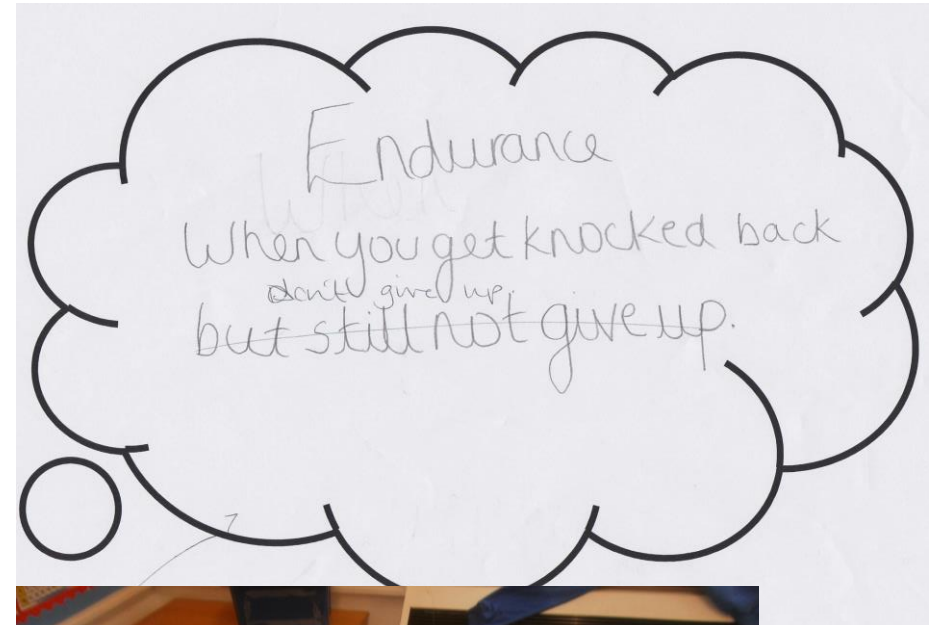 Endurance
When you get knocked back
don't give up.
but still not give up.